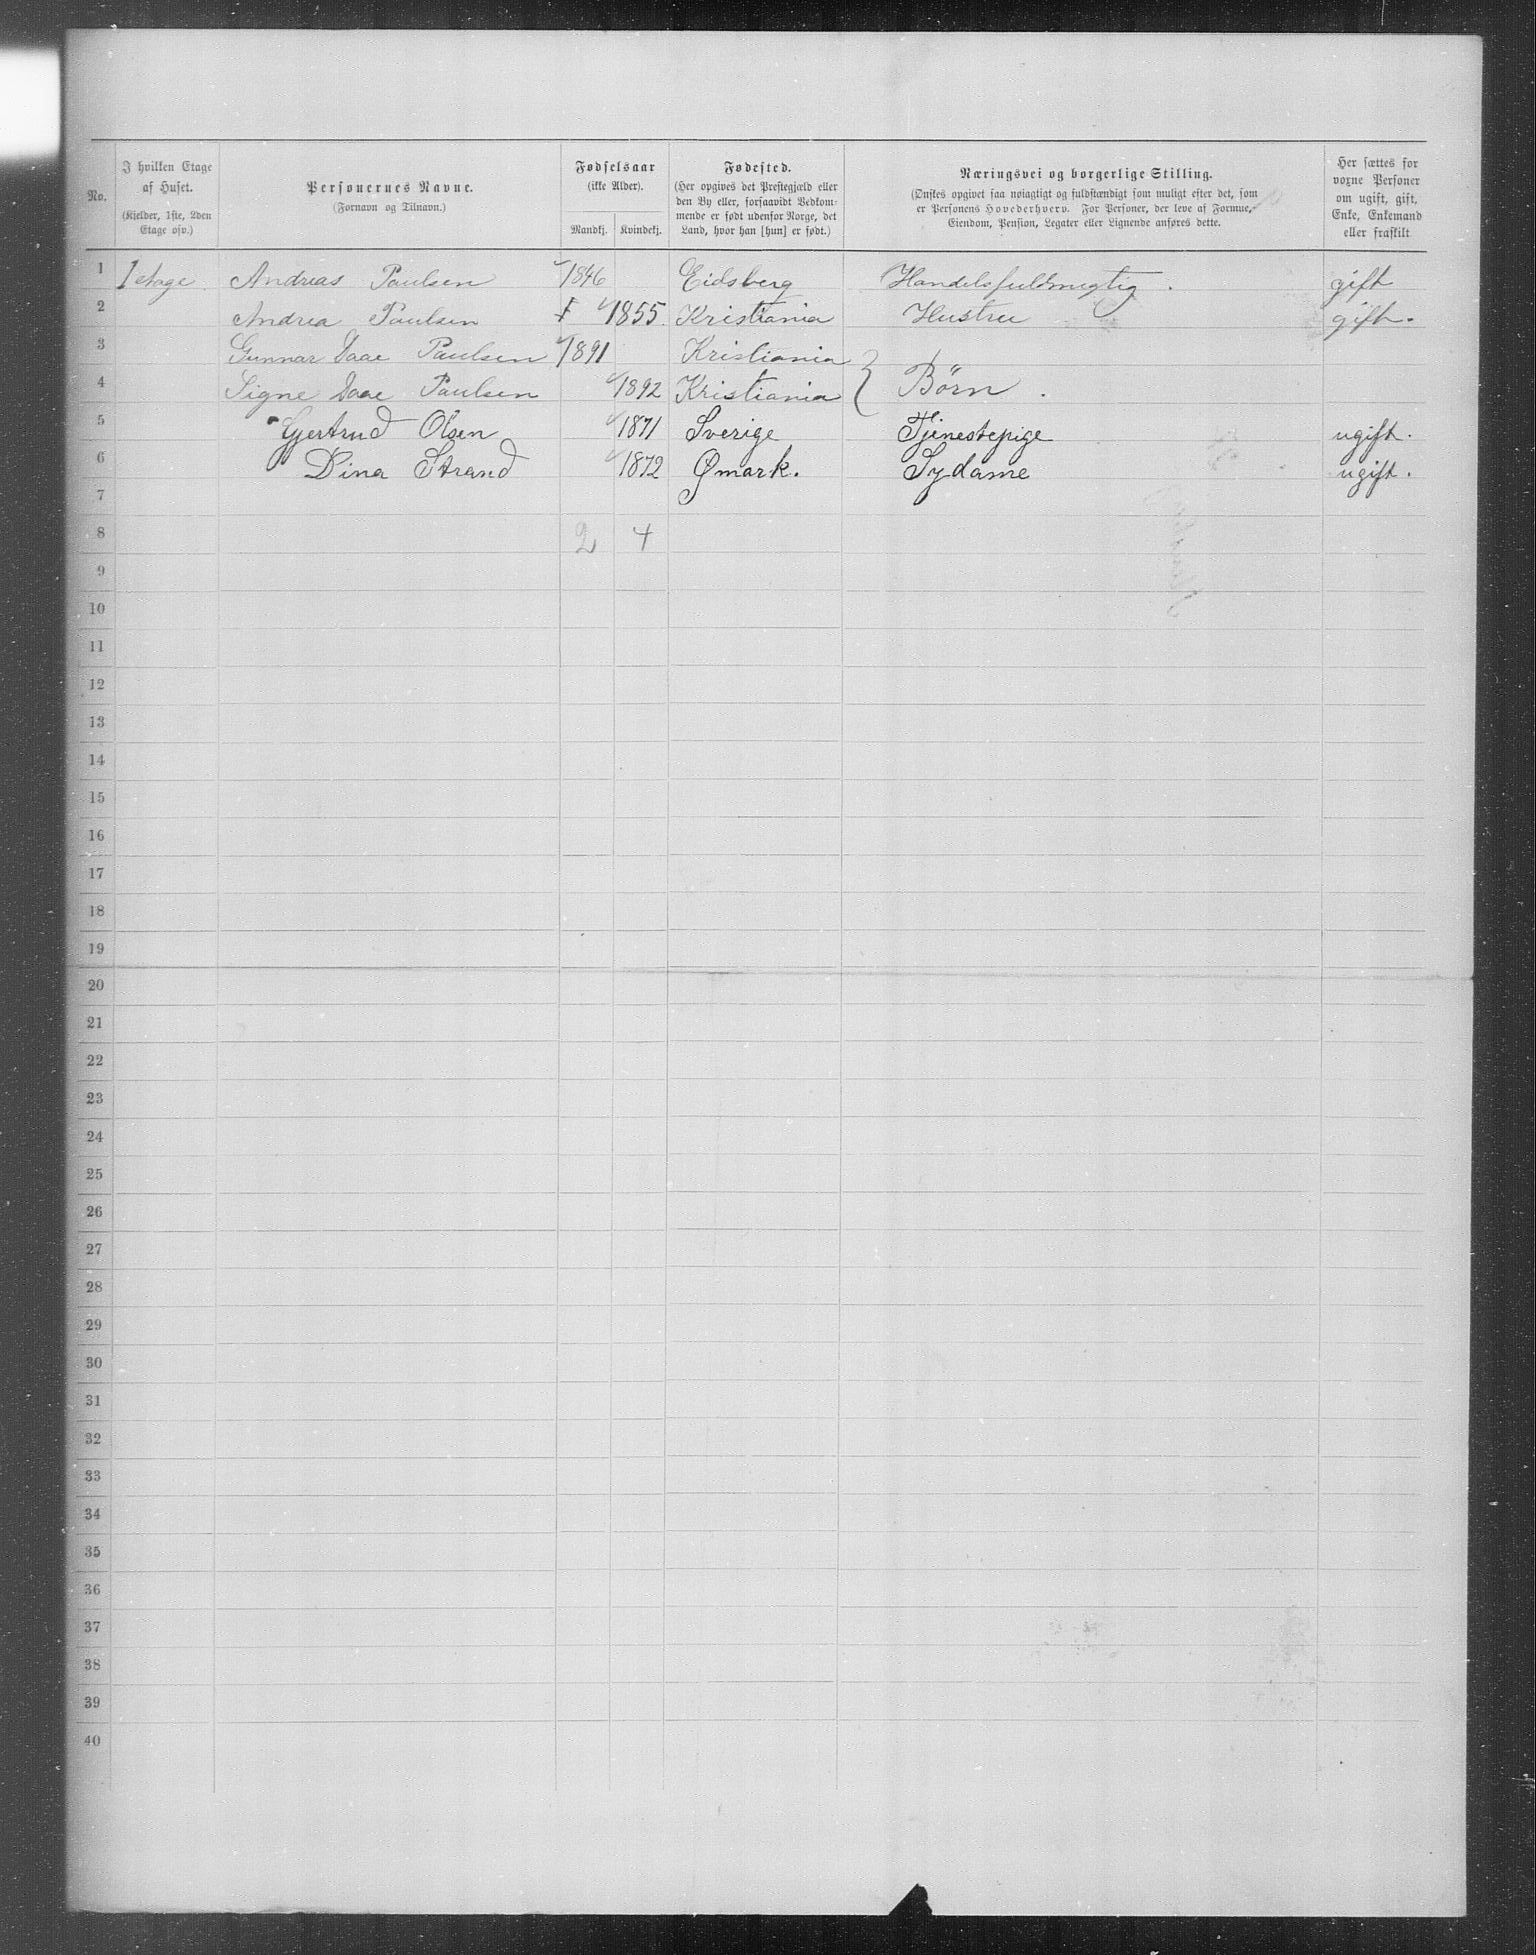 No.
I hvilken Etage af Huset.
(Kjelder, 1ste, 2den Etage osv.)
Personernes Navne.
(Fornavn og Tilnavn.)
Fødselsaar
(ikke Alder).
Mandkj. Kvindekj.
Fødested.
(Her opgives det Prestegjæld eller den By eller, forsaavidt Vedkommende er født udenfor Norge, det Land, hvor han [hun] er født.)
Næringsvei og borgerlige Stilling.
(Ønskes opgivet saa nøiagtigt og fuldstændigt som muligt efter det, som er Personens Hovederhverv. For Personer, der leve af Formue, Eiendom, Pension, Legater eller Lignende anføres dette.
Her sættes for voxne Personer om ugift, gift, Enke, Enkemand eller fraskilt
1 1 etage Andreas Paulsen 1846 Eidsberg Handelsfuldmegtig. gift
2 Andrea Paulsen 1855. Kristiania Hustru gift.
3 Gunnar Daae Paulsen 1891 Kristiania
4 Signe Daae Paulsen 1892 Kristiania } Børn.
5 Gjertrud Olsen 1871 Sverige Tjenestepige ugift.
6 Dina Strand 1872 Ømark. Sydame ugift.
7
8 2 4
9
10
11
12
13
14
15
16
17
18
19
20
21
22
23
24
25
26
27
28
29
30
31
32
33
34
35
36
37
38
39
40